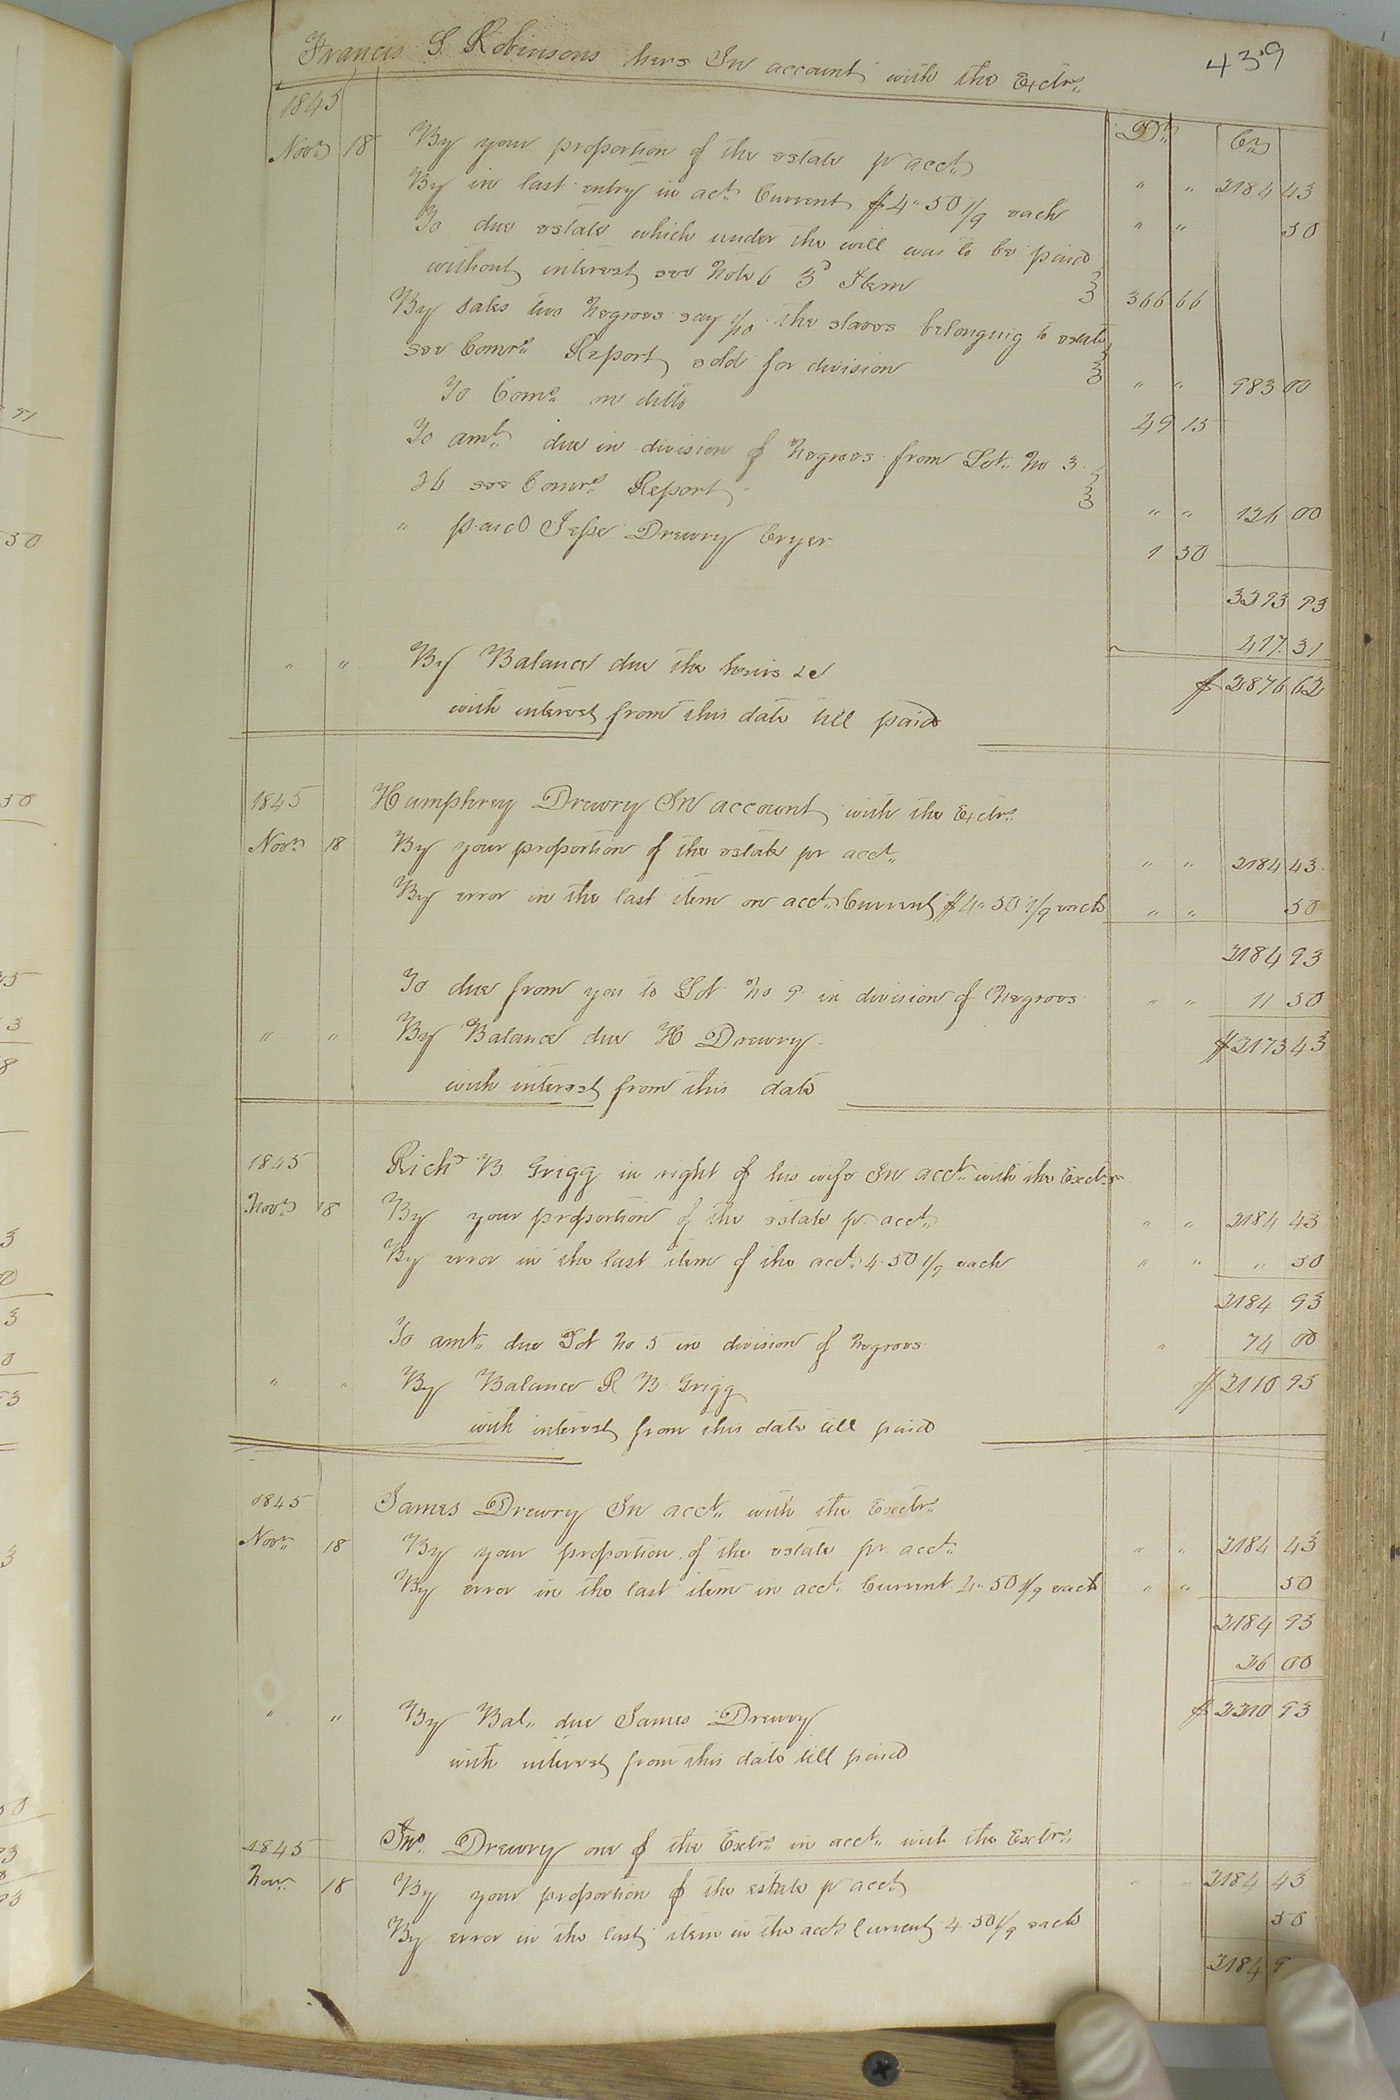 439
Francis S Robinsons heirs In account with the Exctrs
1845 Dr Cr
Novr 18 By your proportion of the estate pr acct " " 2184 43
By in last entry in act Current $4.50 1/9 each " " 50
To due estate which under the will was to be paid
without interest see Note 6 3d Item 366 66
By sales two Negroes say 1/10 the slaves belonging to estate
see Comrs Report sold for division " " 983 00
To Coms on ditto 49 15
To amt due in division of Negroes from Lot No 3
& 6 see Comrs Report " " 126 00
" paid Jesse Drewry Cryer 1 50
3293 93
417 31
" " By Balance due the heirs &c $2876 62
with interest from this date till paid
1845 Humphrey Drewry In account with the Exctrs
Novr 18 By your proportion of the estate pr acct " " 2184 43
By error in the last item on acct Current $4.50 1/9 each " " 50
2184 93
To due from you to Lot No 9 in division of Negroes " " 11 50
" " By Balance due H Drewry $2173 43
with interest from this date
1845 Richd B Grigg in right of his wife In acct with the Exctrs
Novr 18 By your proportion of the estate pr acct " " 2184 43
By error in the last item of the acct 4.50 1/9 each " " " 50
2184 93
To amt due Lot No 5 in division of Negroes " 74 00
" " By Balance R B Grigg $2110 93
with interest from this date till paid
1845 James Drewry In acct with the Exctrs
Novr 18 By your proportion of the estate pr acct " " 2184 43
By error in the last item in acct Current 4.50 1/9 each " " 50
2184 93
26 00
" " By Bal due James Drewry $2210 93
with interest from this date till paid
1845 Jno Drewry one of the Exctrs in acct with the Exctrs
Novr 18 By your proportion of the estate pr acct " " 2184 43
By error in the last item in the acct Current 4.50 1/9 each 50
2184 9